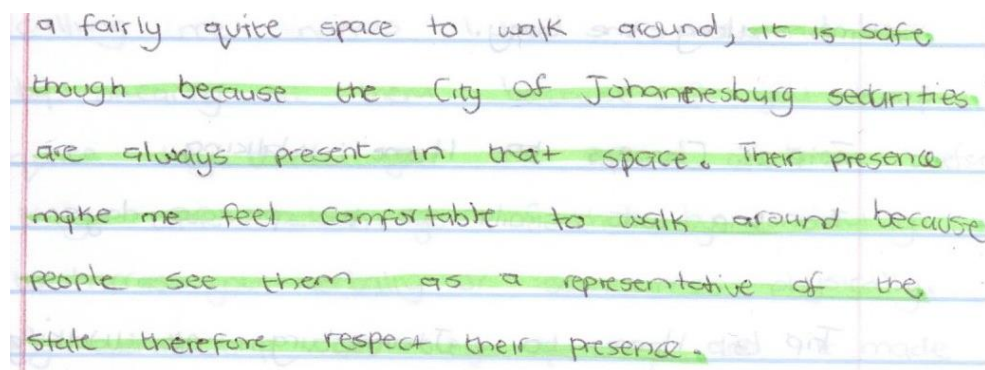 a fairly quite space to walk around, it is safe
though because the City of Johannesburg securities
are always present in that space. Their presence
make me feel comfortable to walk around because
people see them as a representative of the
state therefore respect their presence.